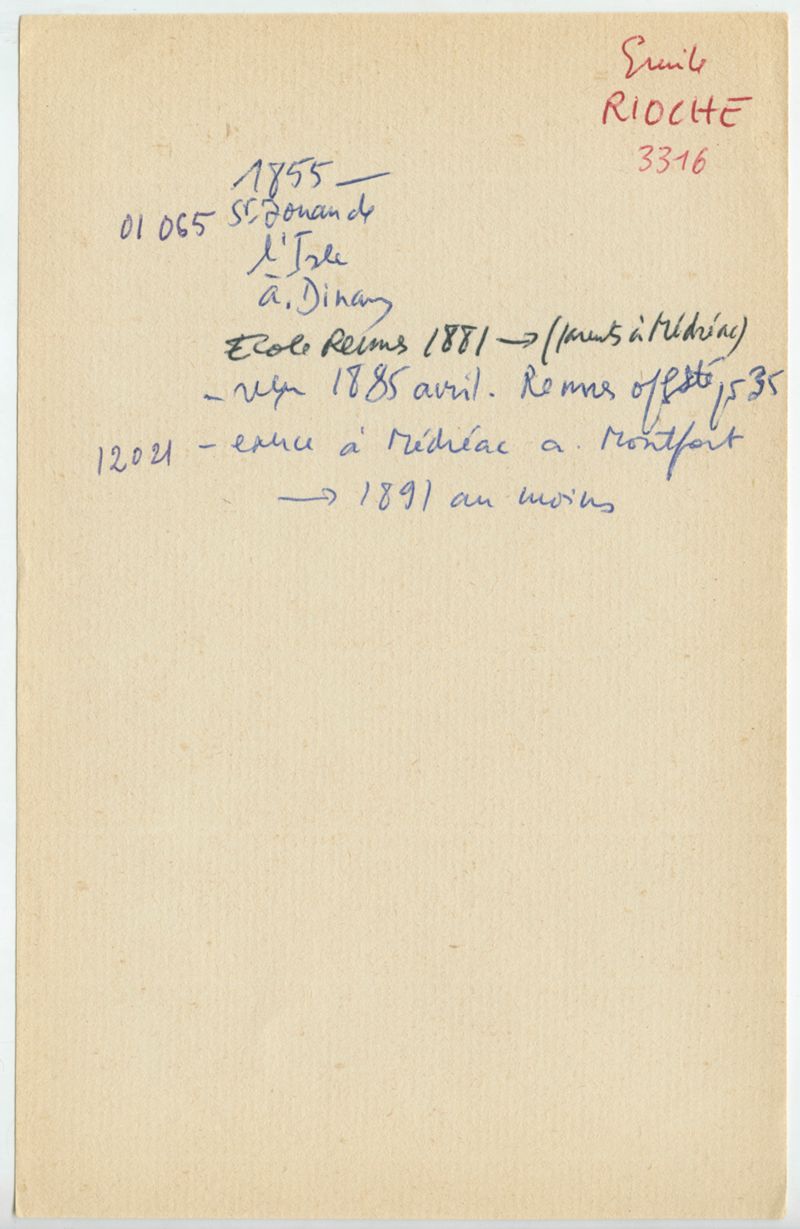 Emile
RIOCHE
3316
1855 —
01 065 St. Jouan de
l'Isle
a. Dinan
Ecole Rennes 1881 → (parents à Médréac)
- reçu 1885 avril. Rennes off sté p535
12021 - exerce à Médréac a. Montfort
→ 1891 au moins